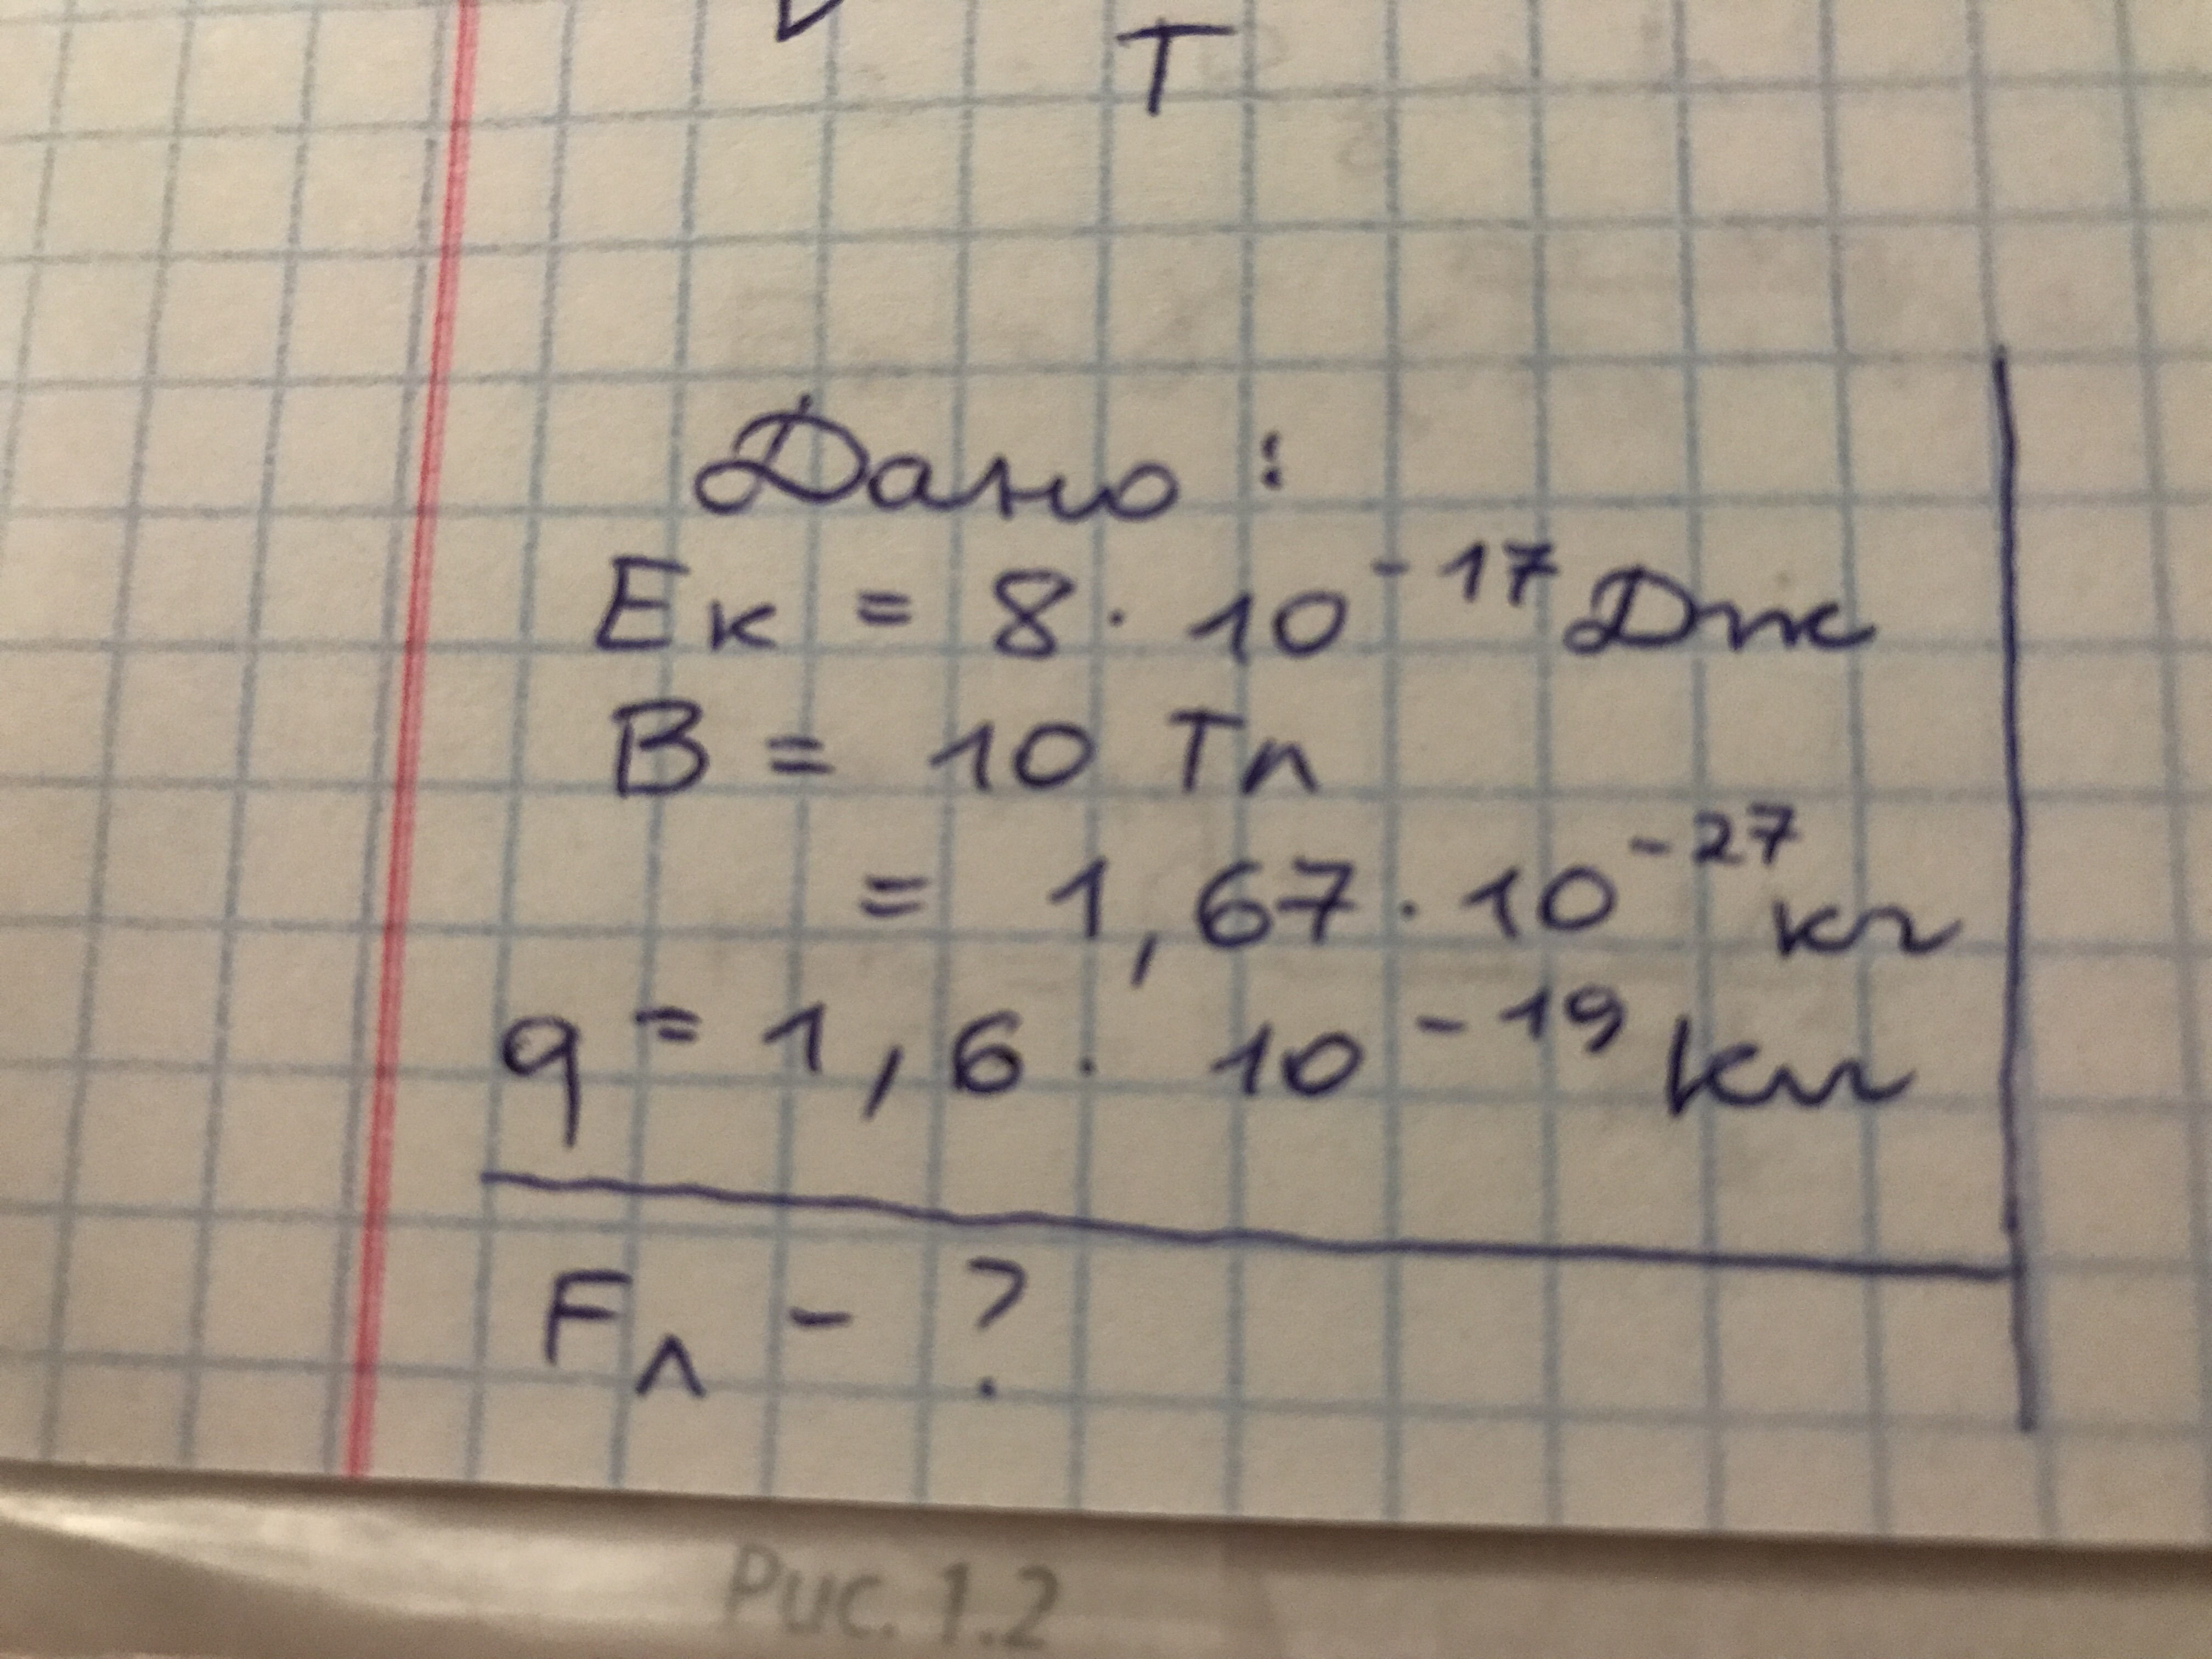 T
Дано:
Eк = 8 · 10⁻¹⁷ Дж
B = 10 Тл
= 1,67 · 10⁻²⁷ кг
q = 1,6 · 10⁻¹⁹ Кл
Fл - ?
Рис. 1.2